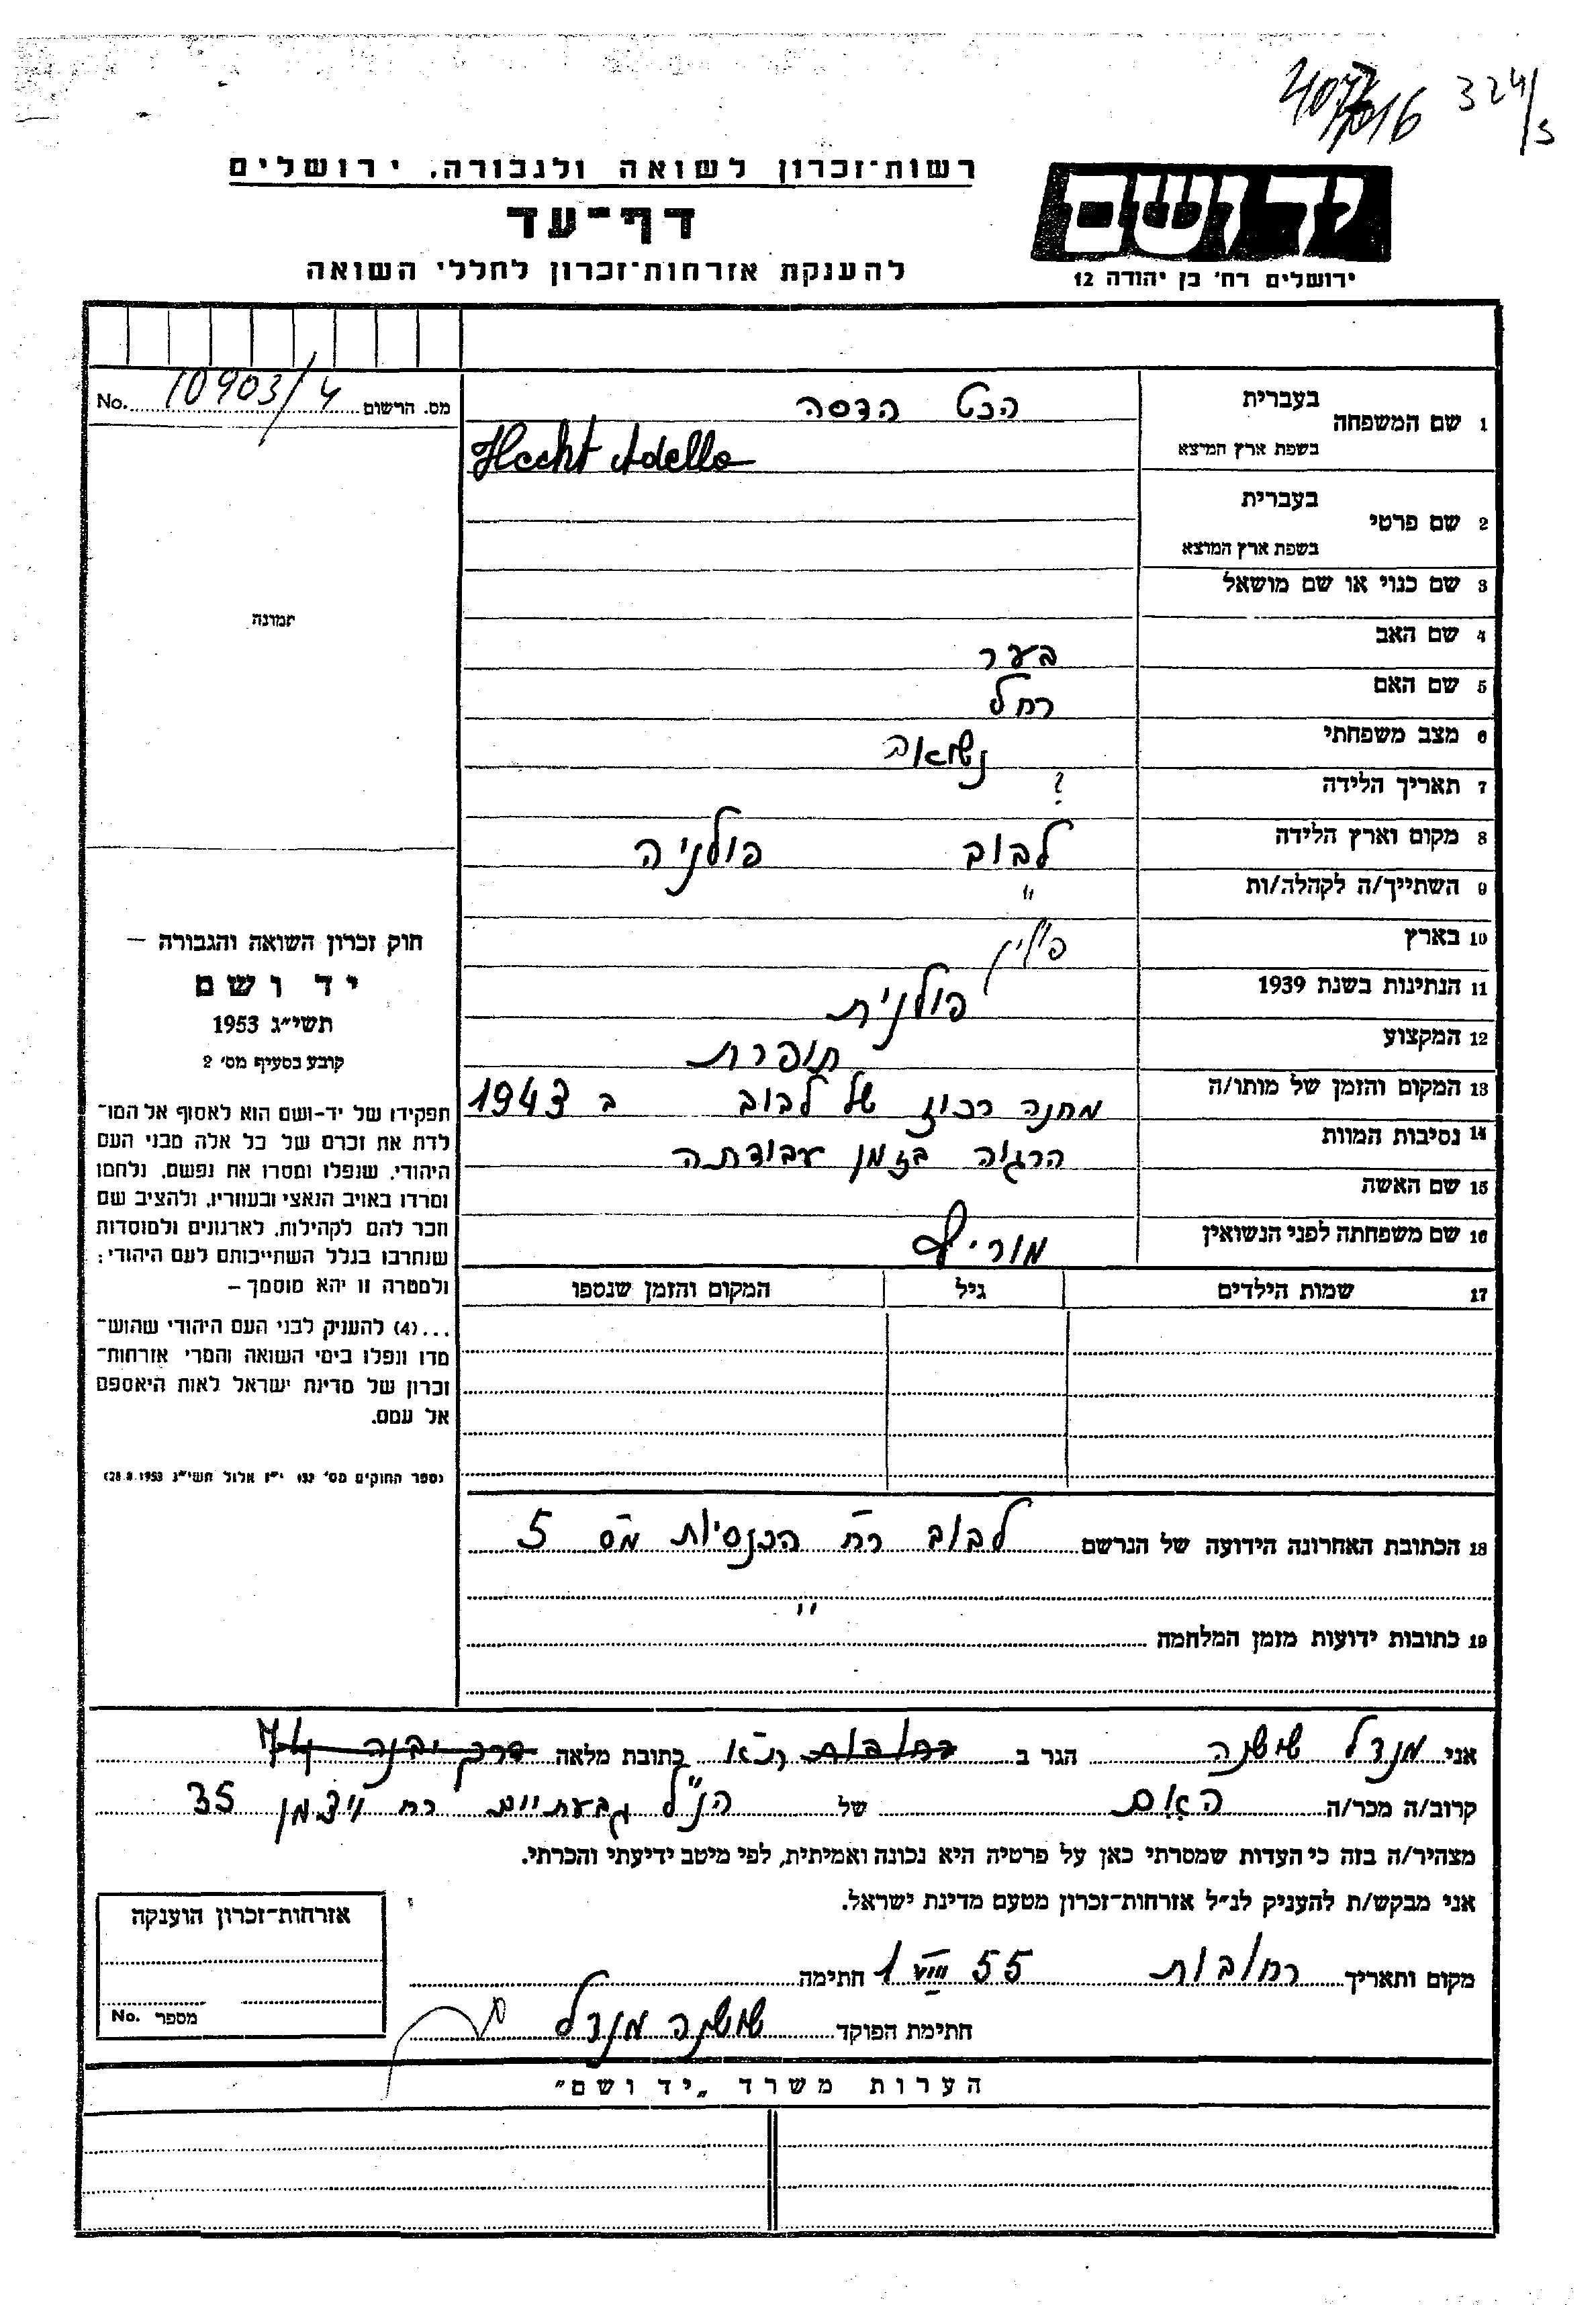 324/5
רשות־זכרון לשואה ולגבורה, ירושלים
יד ושם
דף־עד
ירושלים רח' בן יהודה 12
להענקת אזרחות־זכרון לחללי השואה
מס. הרשום 10903/4 No.
1 שם המשפחה בעברית הכט הדסה
בשפת ארץ המוצא Hecht Adella
2 שם פרטי בעברית
בשפת ארץ המוצא
3 שם כנוי או שם מושאל
תמונה
4 שם האב בער
5 שם האם רחל
6 מצב משפחתי נשואה
7 תאריך הלידה ?
8 מקום וארץ הלידה לבוב פולניה
9 השתייך/ה לקהלה/ות "
10 בארץ פולין
11 הנתינות בשנת 1939 פולנית
12 המקצוע תופרת
13 המקום והזמן של מותו/ה מחנה רכוז של לבוב ב 1943
14 נסיבות המוות הרגוה בזמן עבודתה
15 שם האשה
16 שם משפחתה לפני הנשואין
17 שמות הילדים גיל המקום והזמן שנספו
חוק זכרון השואה והגבורה –
יד ושם
תשי"ג 1953
קובע בסעיף מס' 2
תפקידו של יד-ושם הוא לאסוף אל המו־
לדת את זכרם של כל אלה מבני העם
היהודי, שנפלו ומסרו את נפשם, נלחמו
ומרדו באויב הנאצי ובעוזריו, ולהציב שם
וזכר להם לקהילות, לארגונים ולמוסדות
שנחרבו בגלל השתייכותם לעם היהודי;
ולמטרה זו יהא מוסמך –
...(4) להעניק לבני העם היהודי שהוש־
מדו ונפלו בימי השואה והמרי אזרחות־
זכרון של מדינת ישראל לאות היאספם
אל עמם.
(ספר החוקים מס' 132 י"ז אלול תשי"ג 28.8.1953)
18 הכתובת האחרונה הידועה של הנרשם לבוב רח הכנסיות מס 5
19 כתובות ידועות מזמן המלחמה "
אני מנדל שושנה הגר ב רחובות ת"א כתובת מלאה דרך יבנה 74
קרוב/ה מכר/ה האם של הנ"ל גבעתיים רח ויצמן 35
מצהיר/ה בזה כי העדות שמסרתי כאן על פרטיה היא נכונה ואמיתית, לפי מיטב ידיעתי והכרתי.
אני מבקש/ת להעניק לנ"ל אזרחות־זכרון מטעם מדינת ישראל.
מקום ותאריך רחובות 1 VIII 55 חתימה
חתימת הפוקד שושנה מנדל
אזרחות־זכרון הוענקה
מספר No.
הערות משרד „יד ושם"